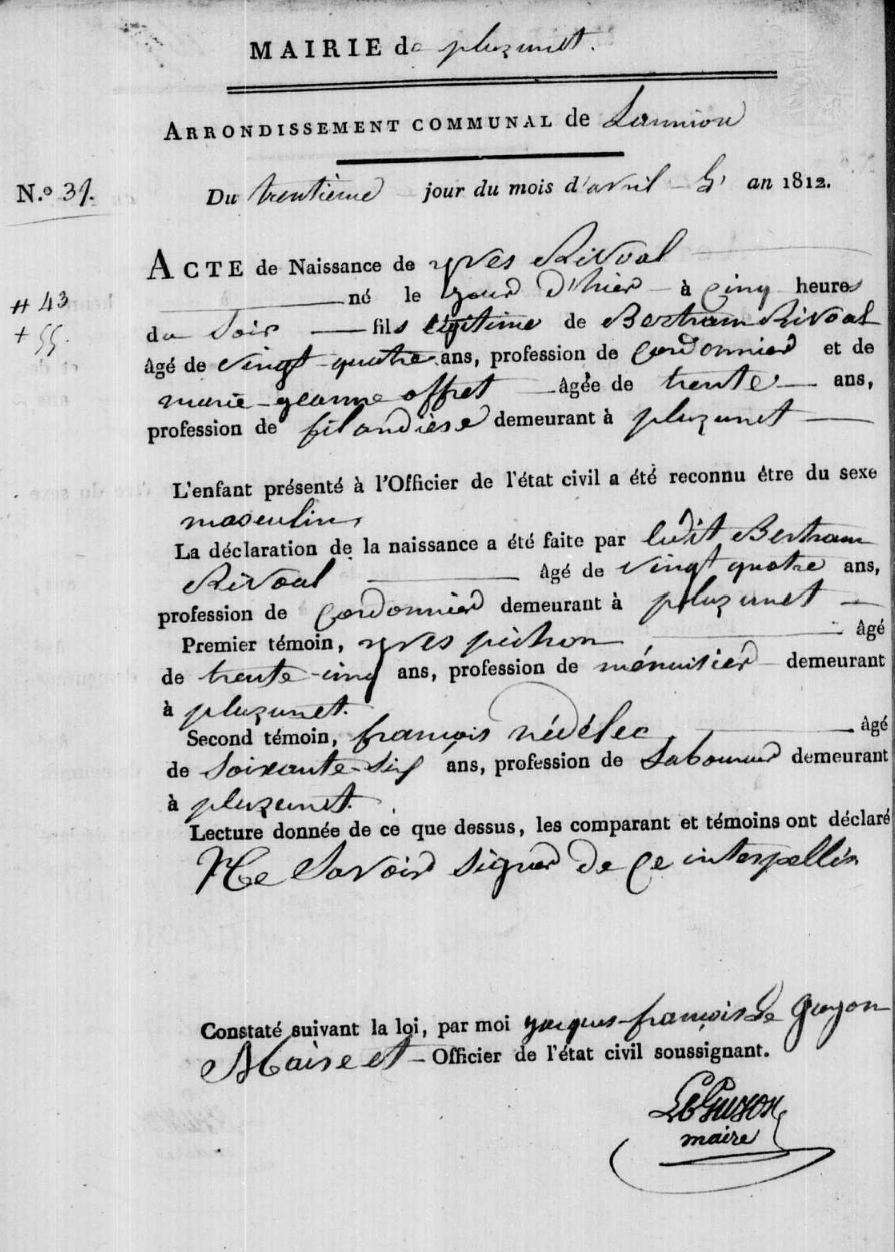 MAIRIE de pluzunet.
ARRONDISSEMENT COMMUNAL de Lannion
N.o 31.
Du trentième jour du mois d'avril an 1812.
ACTE de Naissance de yves Rivoal
# 43
né le jour d'hier à Cinq heures
+ 55.
du Soir fils légitime de Bertram Rivoal
âgé de vingt-quatre ans, profession de Cordonnier et de
marie-jeanne offret âgée de trente ans,
profession de filandiese demeurant à pluzunet
L'enfant présenté à l'Officier de l'état civil a été reconnu être du sexe
masculin,
La déclaration de la naissance a été faite par ludit Bertram
Rivoal âgé de vingt quatre ans,
profession de Cordonnier demeurant à pluzunet
Premier témoin, yves pichon âgé
de trente-cinq ans, profession de ménuisier demeurant
à pluzunet.
Second témoin, françois nédélec âgé
de Soixante-six ans, profession de Laboureur demeurant
à pluzunet.
Lecture donnée de ce que dessus, les comparant et témoins ont déclaré
Ne Savoir Signer de Ce interpellés
Constaté suivant la loi, par moi jacques-françois Le guyon
Maire et Officier de l'état civil soussignant.
Le Guyon
maire